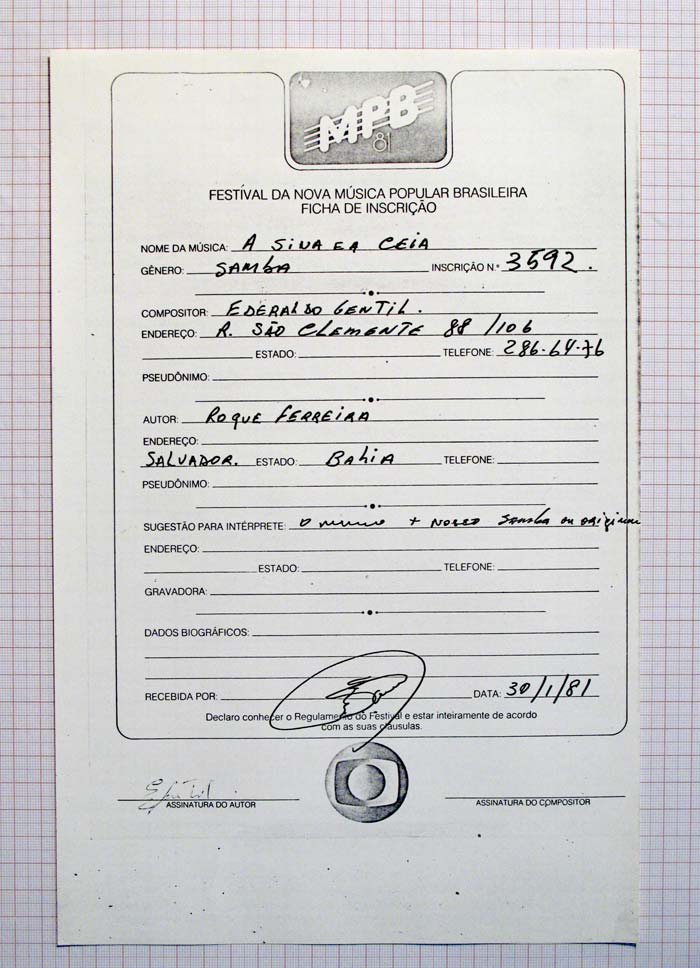 MPB
81
FESTIVAL DA NOVA MÚSICA POPULAR BRASILEIRA
FICHA DE INSCRIÇÃO
NOME DA MÚSICA: A SINA E A CEIA
GÊNERO: SAMBA INSCRIÇÃO N.º 3592.
COMPOSITOR: EDERALDO GENTIL.
ENDEREÇO: R. SÃO CLEMENTE 88/106
ESTADO: TELEFONE: 286-64-76
PSEUDÔNIMO:
AUTOR: ROQUE FERREIRA
ENDEREÇO:
SALVADOR. ESTADO: BAhiA TELEFONE:
PSEUDÔNIMO:
SUGESTÃO PARA INTÉRPRETE: O mesmo + NOSSO SAMBA ou
ENDEREÇO:
ESTADO: TELEFONE:
GRAVADORA:
DADOS BIOGRÁFICOS:
RECEBIDA POR: DATA: 30/1/81
Declaro conhecer o Regulamento do Festival e estar inteiramente de acordo
com as suas cláusulas.
ASSINATURA DO AUTOR ASSINATURA DO COMPOSITOR